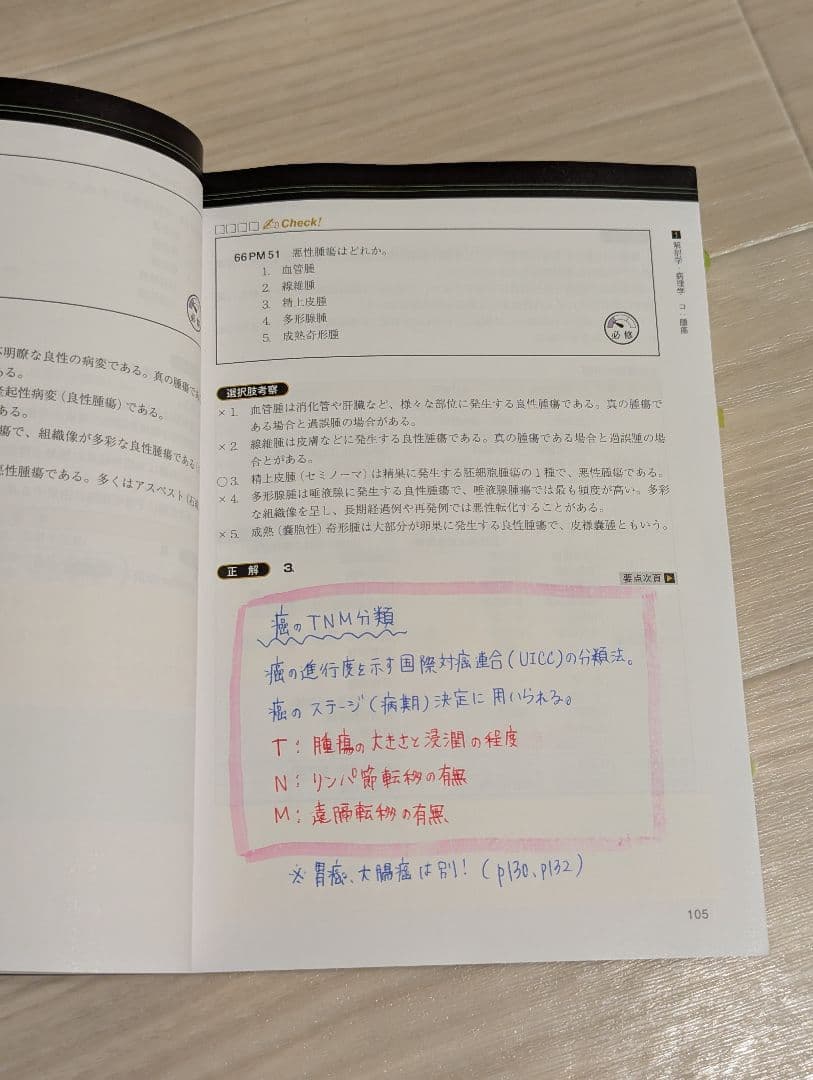 不明瞭な良性の病変である。真の腫瘍で
ある。
隆起性病変（良性腫瘍）である。
ある。
瘍で、組織像が多彩な良性腫瘍である
悪性腫瘍である。多くはアスベスト（石
必修
□□□□ Check!
66PM51 悪性腫瘍はどれか。
1. 血管腫
2. 線維腫
3. 精上皮腫
4. 多形腺腫
5. 成熟奇形腫
必修
1 解剖学・病理学 コ：腫瘍
選択肢考察
×1. 血管腫は消化管や肝臓など、様々な部位に発生する良性腫瘍である。真の腫瘍で
ある場合と過誤腫の場合がある。
×2. 線維腫は皮膚などに発生する良性腫瘍である。真の腫瘍である場合と過誤腫の場
合とがある。
○3. 精上皮腫（セミノーマ）は精巣に発生する胚細胞腫瘍の1種で、悪性腫瘍である。
×4. 多形腺腫は唾液腺に発生する良性腫瘍で、唾液腺腫瘍では最も頻度が高い。多彩
な組織像を呈し、長期経過例や再発例では悪性転化することがある。
×5. 成熟（嚢胞性）奇形腫は大部分が卵巣に発生する良性腫瘍で、皮様嚢腫ともいう。
正解 3
要点次頁▶
癌のTNM分類
癌の進行度を示す国際対癌連合(UICC)の分類法。
癌のステージ(病期)決定に用いられる。
T：腫瘍の大きさと浸潤の程度
N：リンパ節転移の有無
M：遠隔転移の有無
※胃癌、大腸癌は別！(p130、p132)
105